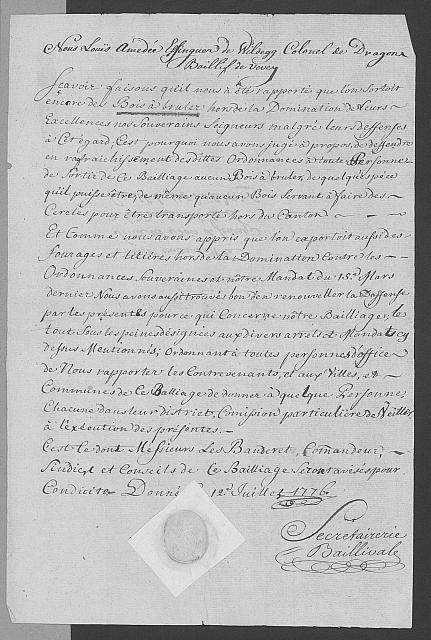 Nous Louis Amedée Effinguer de Wildegg Colonel de Dragons
Baillif de Vevey
Scavoir faisons quil nous a été rapporté que lon sortoit
encore des Bois à bruler hors de la Domination de Leurs
Excellences nos Souverains Seigneurs malgré leurs deffenses
à Cet égard, C'est pourquoi nous avons jugé à propos de deffendre
en rafraichissement desdittes Ordonnances à toute Personne
de Sortir de Ce Bailliage aucun Bois à bruler, de quelque espèce
quil puisse être, de même qu'aucun Bois Servant à faire des
Cercles pour être transporté hors du Canton
Et Comme nous avons appris que lon exportoit aussi des
Fourages et litières hors de la Domination Contre les
Ordonnances Souveraines et notre Mandat du 15e Mars
dernier Nous avons aussi trouvé bon d'en renouveller la Deffense
par les présentes pour ce qui Concerne notre Bailliage; le
tout Sous les peines désignées aux divers arrets et Mandats cy
dessus Mentionnés; Ordonnant à toutes personnes d'office
de Nous rapporter les Contrevenants, et aux Villes, et
Communes de Ce Balliage de donner à quelque Personne,
Chacune dans leur district, Comission particulière de Veiller
à l'exécution des présentes.
C'est Ce dont Messieurs Les Banderet, Comandeur,
Sindics et Conseils de Ce Bailliage Seront avisés pour
Conduite Donné 12e Juillet 1776
Secrétairerie
Baillivale